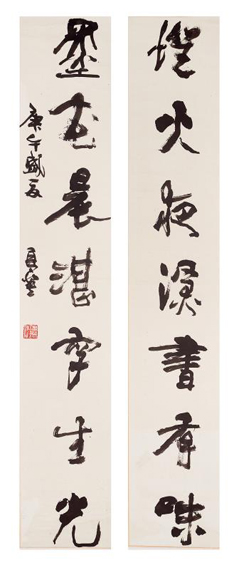 燈火夜深書有味
墨花晨湛字生光
庚午盛夏